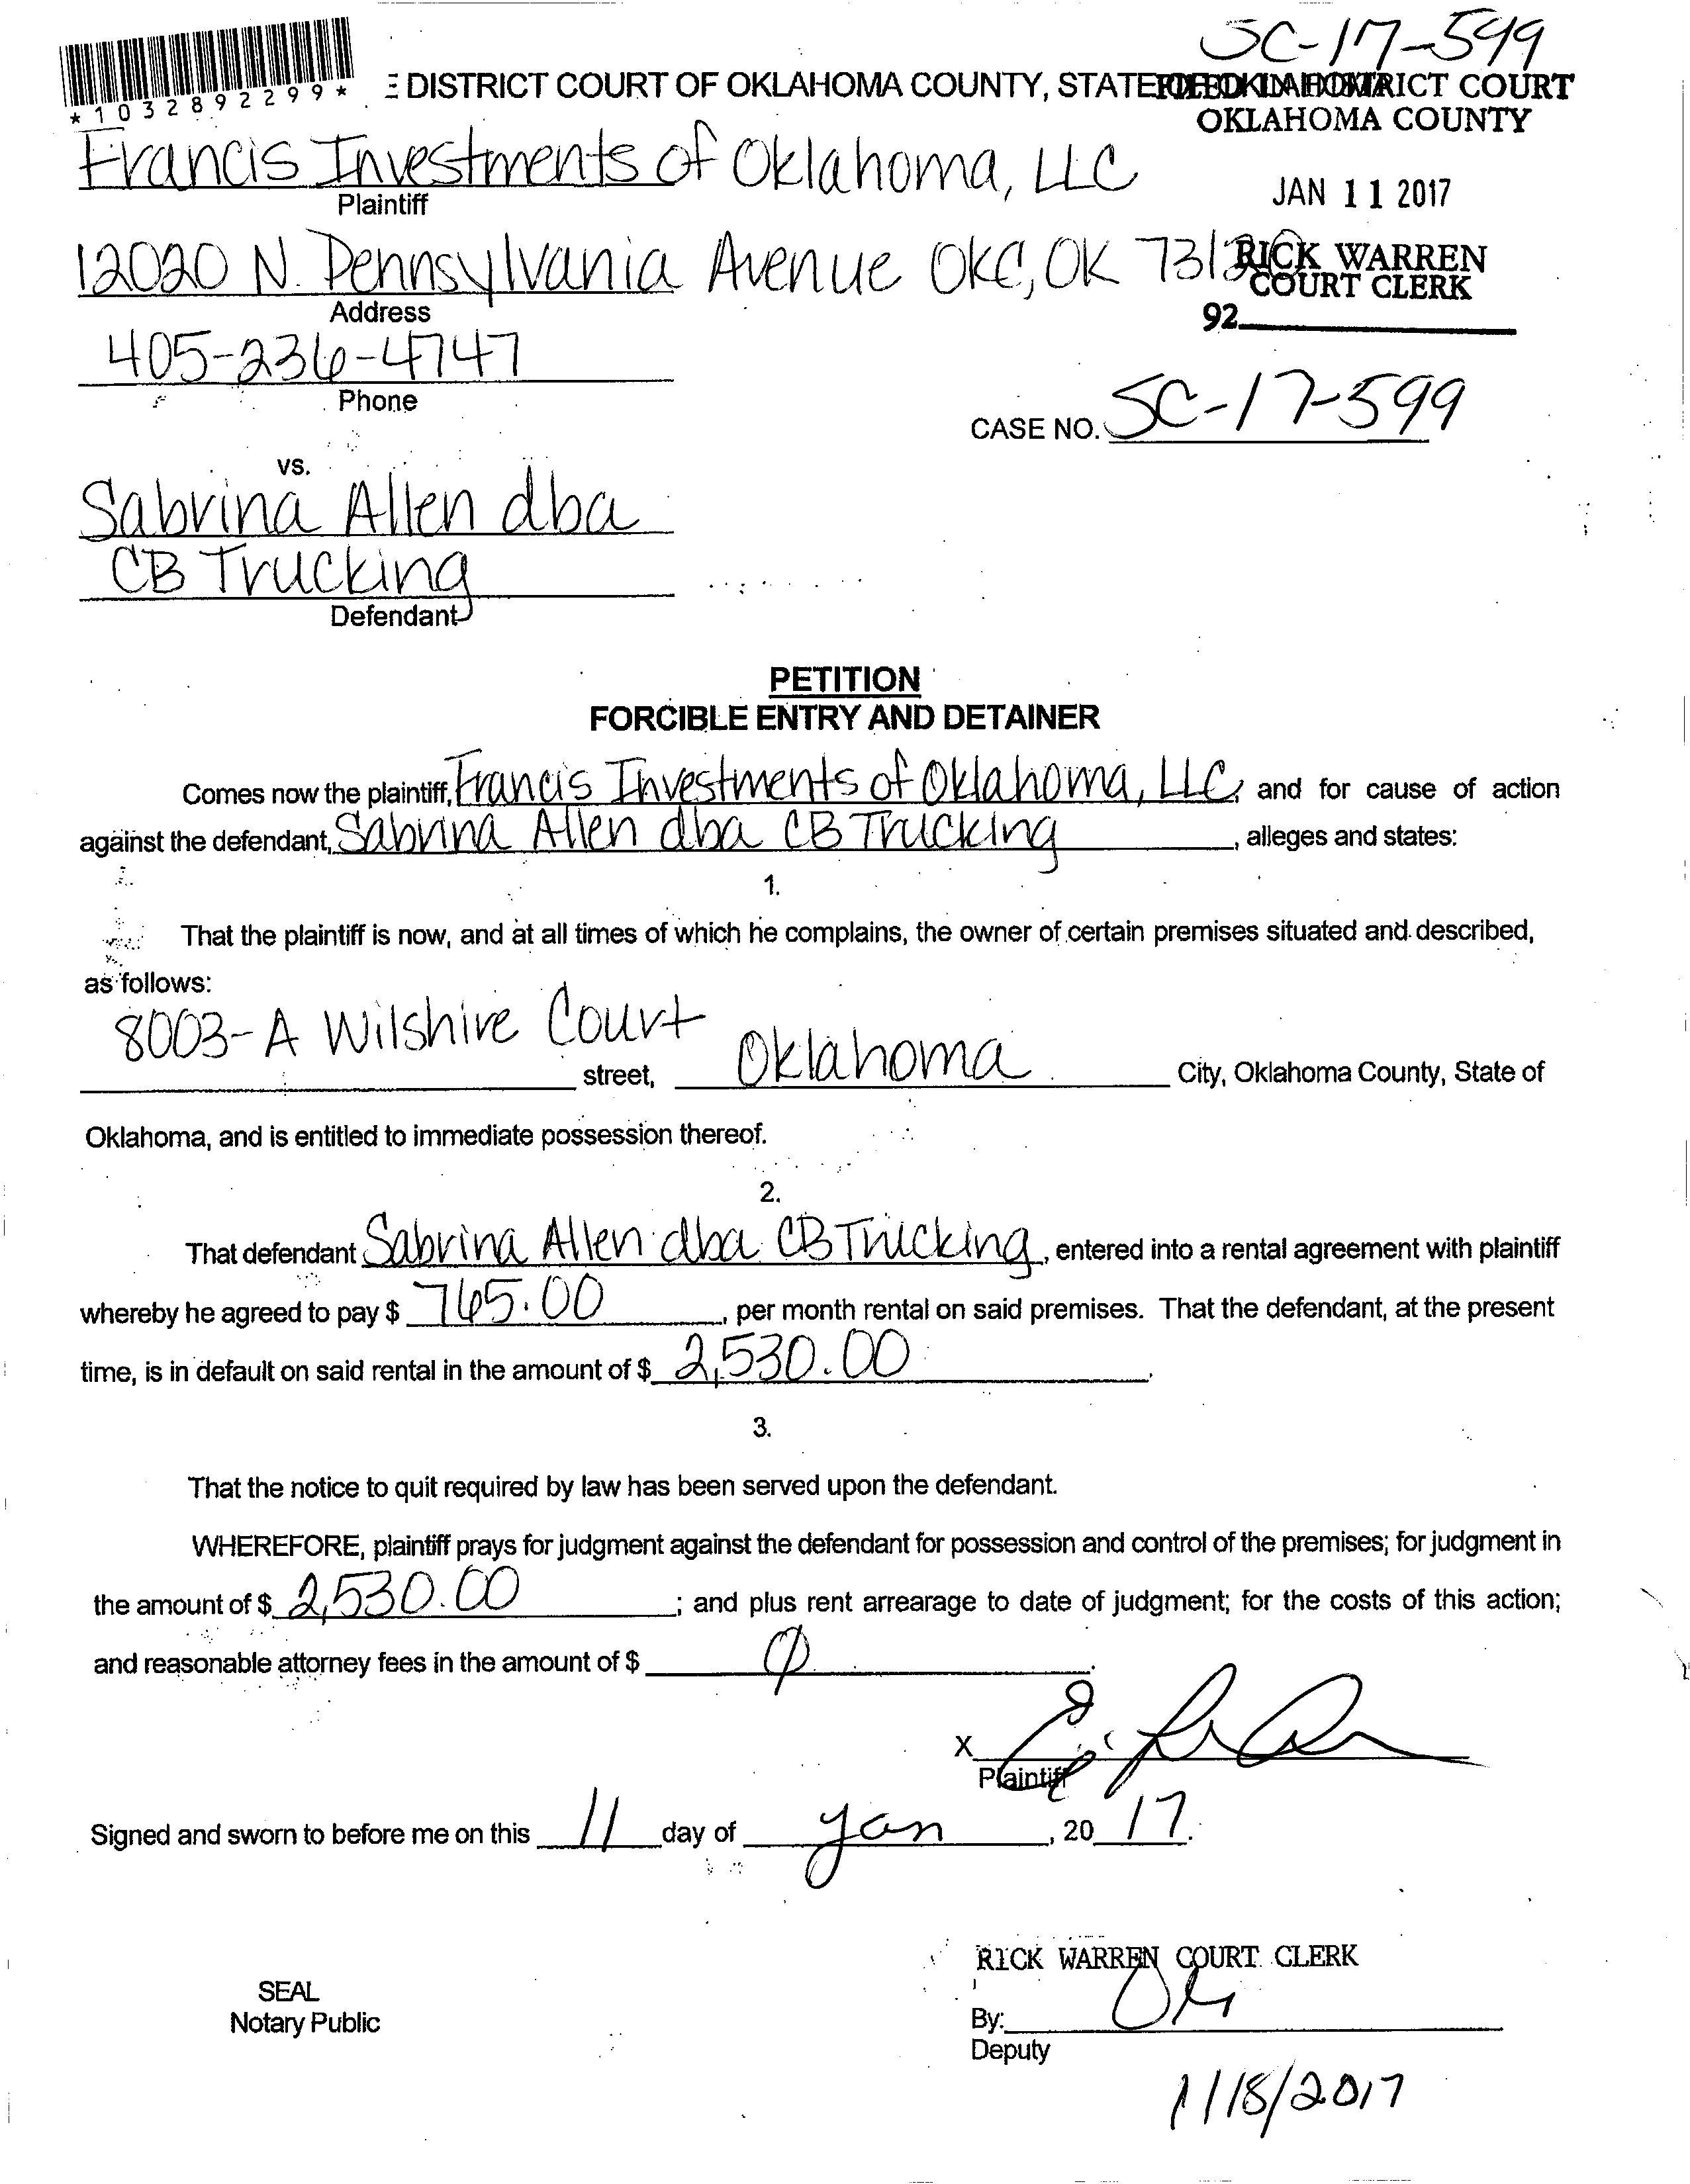 SC-17-599
DISTRICT COURT OF OKLAHOMA COUNTY, STATE OF OKLAHOMA
FILED IN DISTRICT COURT
OKLAHOMA COUNTY
*1032892299*
Francis Investments of Oklahoma, LLC
Plaintiff
JAN 11 2017
12020 N. Pennsylvania Avenue OKC, OK
RICK WARREN
COURT CLERK
Address
92
405-236-4747
Phone
CASE NO. SC-17-599
vs.
Sabrina Allen dba
CB Trucking
Defendant
PETITION
FORCIBLE ENTRY AND DETAINER
Comes now the plaintiff, Francis Investments of Oklahoma, LLC, and for cause of action
against the defendant, Sabrina Allen dba CB Trucking, alleges and states:
1.
That the plaintiff is now, and at all times of which he complains, the owner of certain premises situated and described,
as follows:
8003-A Wilshire Court street, Oklahoma City, Oklahoma County, State of
Oklahoma, and is entitled to immediate possession thereof.
2.
That defendant Sabrina Allen dba CB Trucking, entered into a rental agreement with plaintiff
whereby he agreed to pay $ 765.00, per month rental on said premises. That the defendant, at the present
time, is in default on said rental in the amount of $ 2,530.00.
3.
That the notice to quit required by law has been served upon the defendant.
WHEREFORE, plaintiff prays for judgment against the defendant for possession and control of the premises; for judgment in
the amount of $ 2,530.00; and plus rent arrearage to date of judgment; for the costs of this action;
and reasonable attorney fees in the amount of $ 0.
X
Plaintiff
Signed and sworn to before me on this 11 day of Jan, 2017.
RICK WARREN COURT CLERK
SEAL
Notary Public
By:
Deputy
1/18/2017